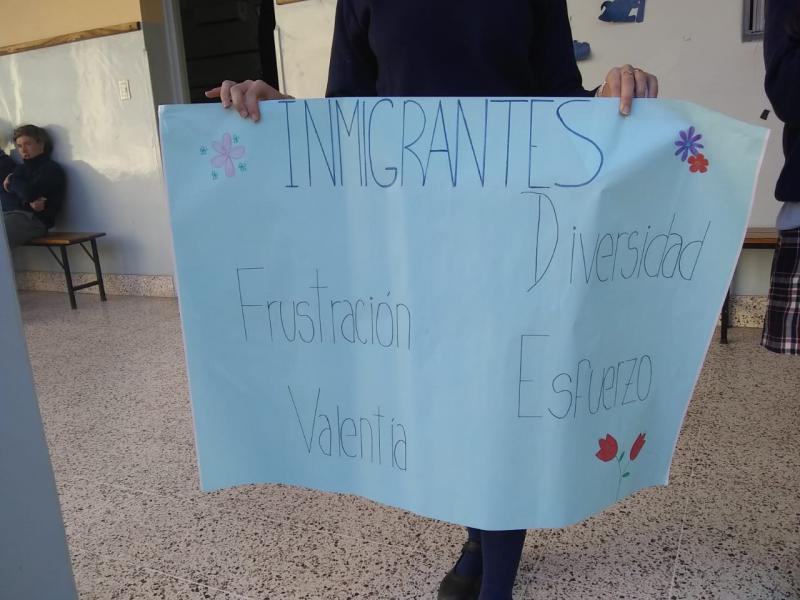 INMIGRANTES
Diversidad
Frustración
Esfuerzo
Valentía